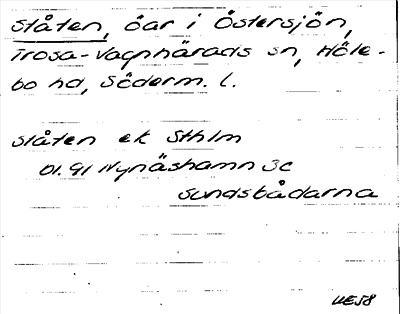 Ståten, öar i Östersjön,
Trosa-Vagnhärads sn, Höle-
bo hd, Söderm. l.
Ståten ek Sthlm
bl. 91 Nynäshamn 3c
Sundsbådarna
UE58